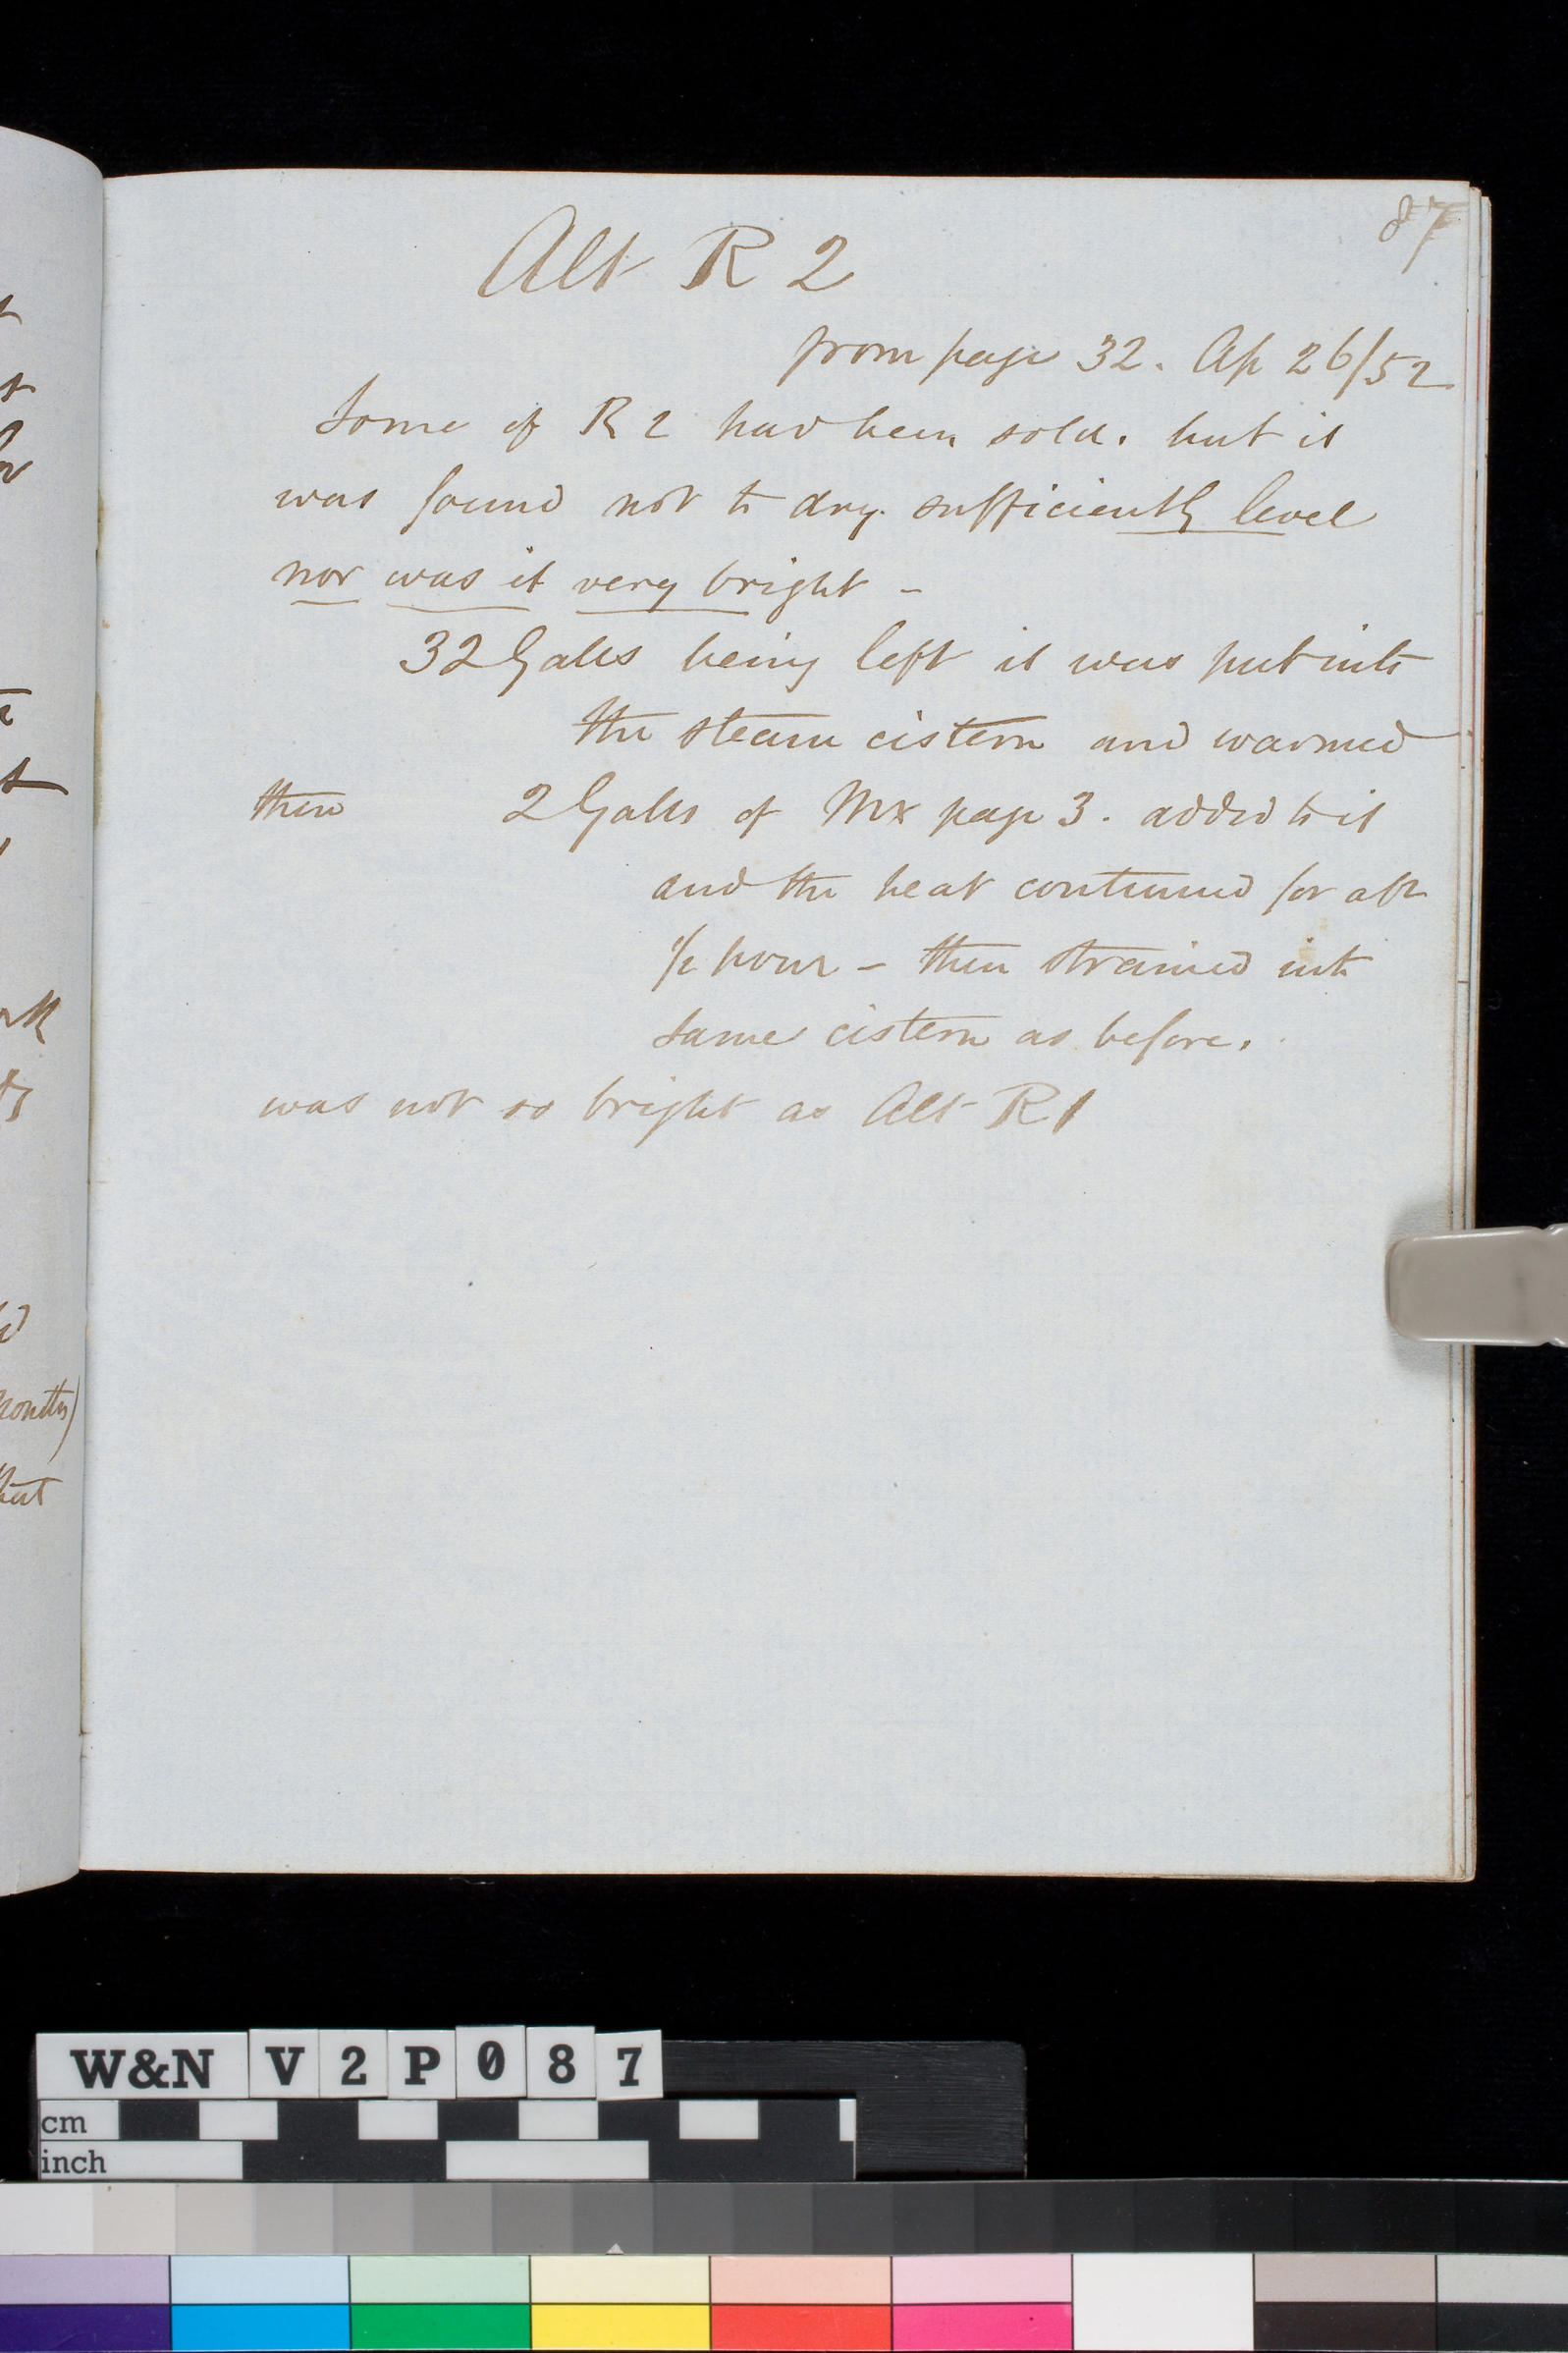 87
Alt R 2
from page 32. Ap 26/52
Some of R 2 had been sold. but it
was found not to dry sufficiently level
nor was it very bright -
32 Galls being left it was put into
the steam cistern and warmed
then 2 Galls of Mx page 3. added to it
and the heat continued for abt
1/2 hour - then strained into
same cistern as before.
was not so bright as Alt R1
W&N V2P087
cm
inch